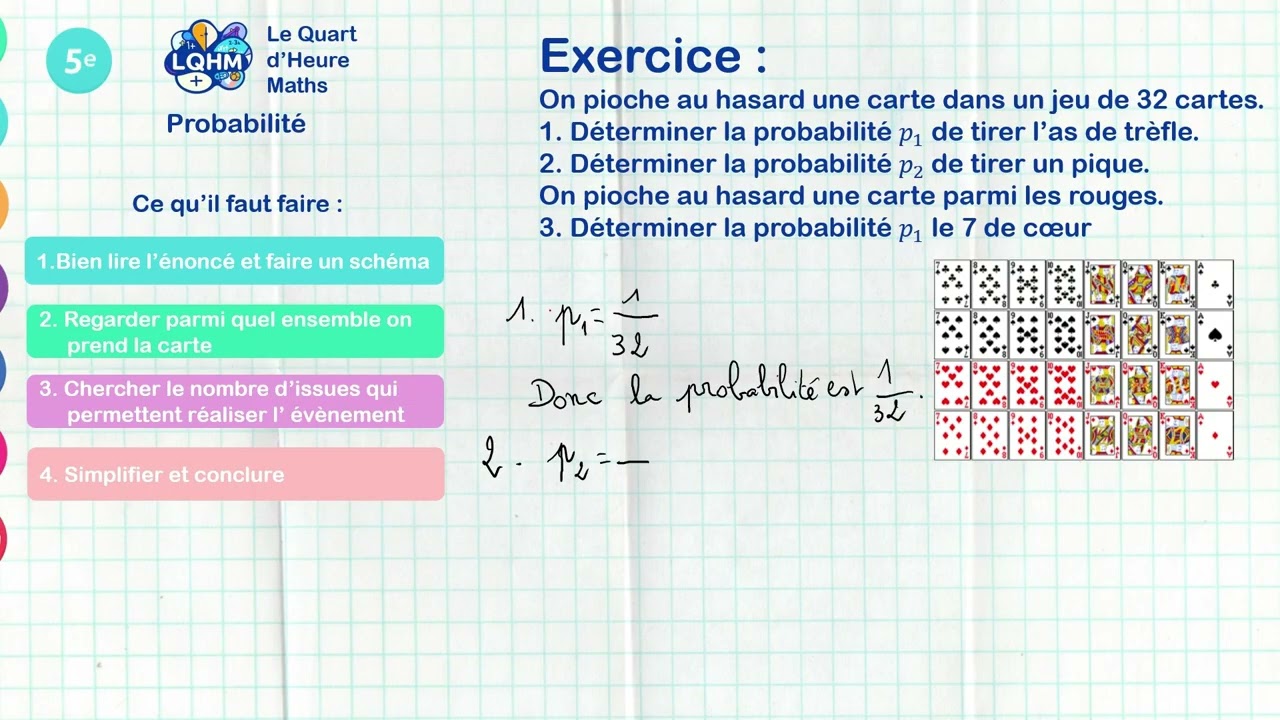 5e
LQHM
Le Quart
d’Heure
Maths
Probabilité
Ce qu’il faut faire :
1.Bien lire l’énoncé et faire un schéma
2. Regarder parmi quel ensemble on
prend la carte
3. Chercher le nombre d’issues qui
permettent réaliser l’ évènement
4. Simplifier et conclure
Exercice :
On pioche au hasard une carte dans un jeu de 32 cartes.
1. Déterminer la probabilité p₁ de tirer l’as de trèfle.
2. Déterminer la probabilité p₂ de tirer un pique.
On pioche au hasard une carte parmi les rouges.
3. Déterminer la probabilité p₁ le 7 de cœur
1. p₁ = 1/32
Donc la probabilité est 1/32.
2. p₂ = —